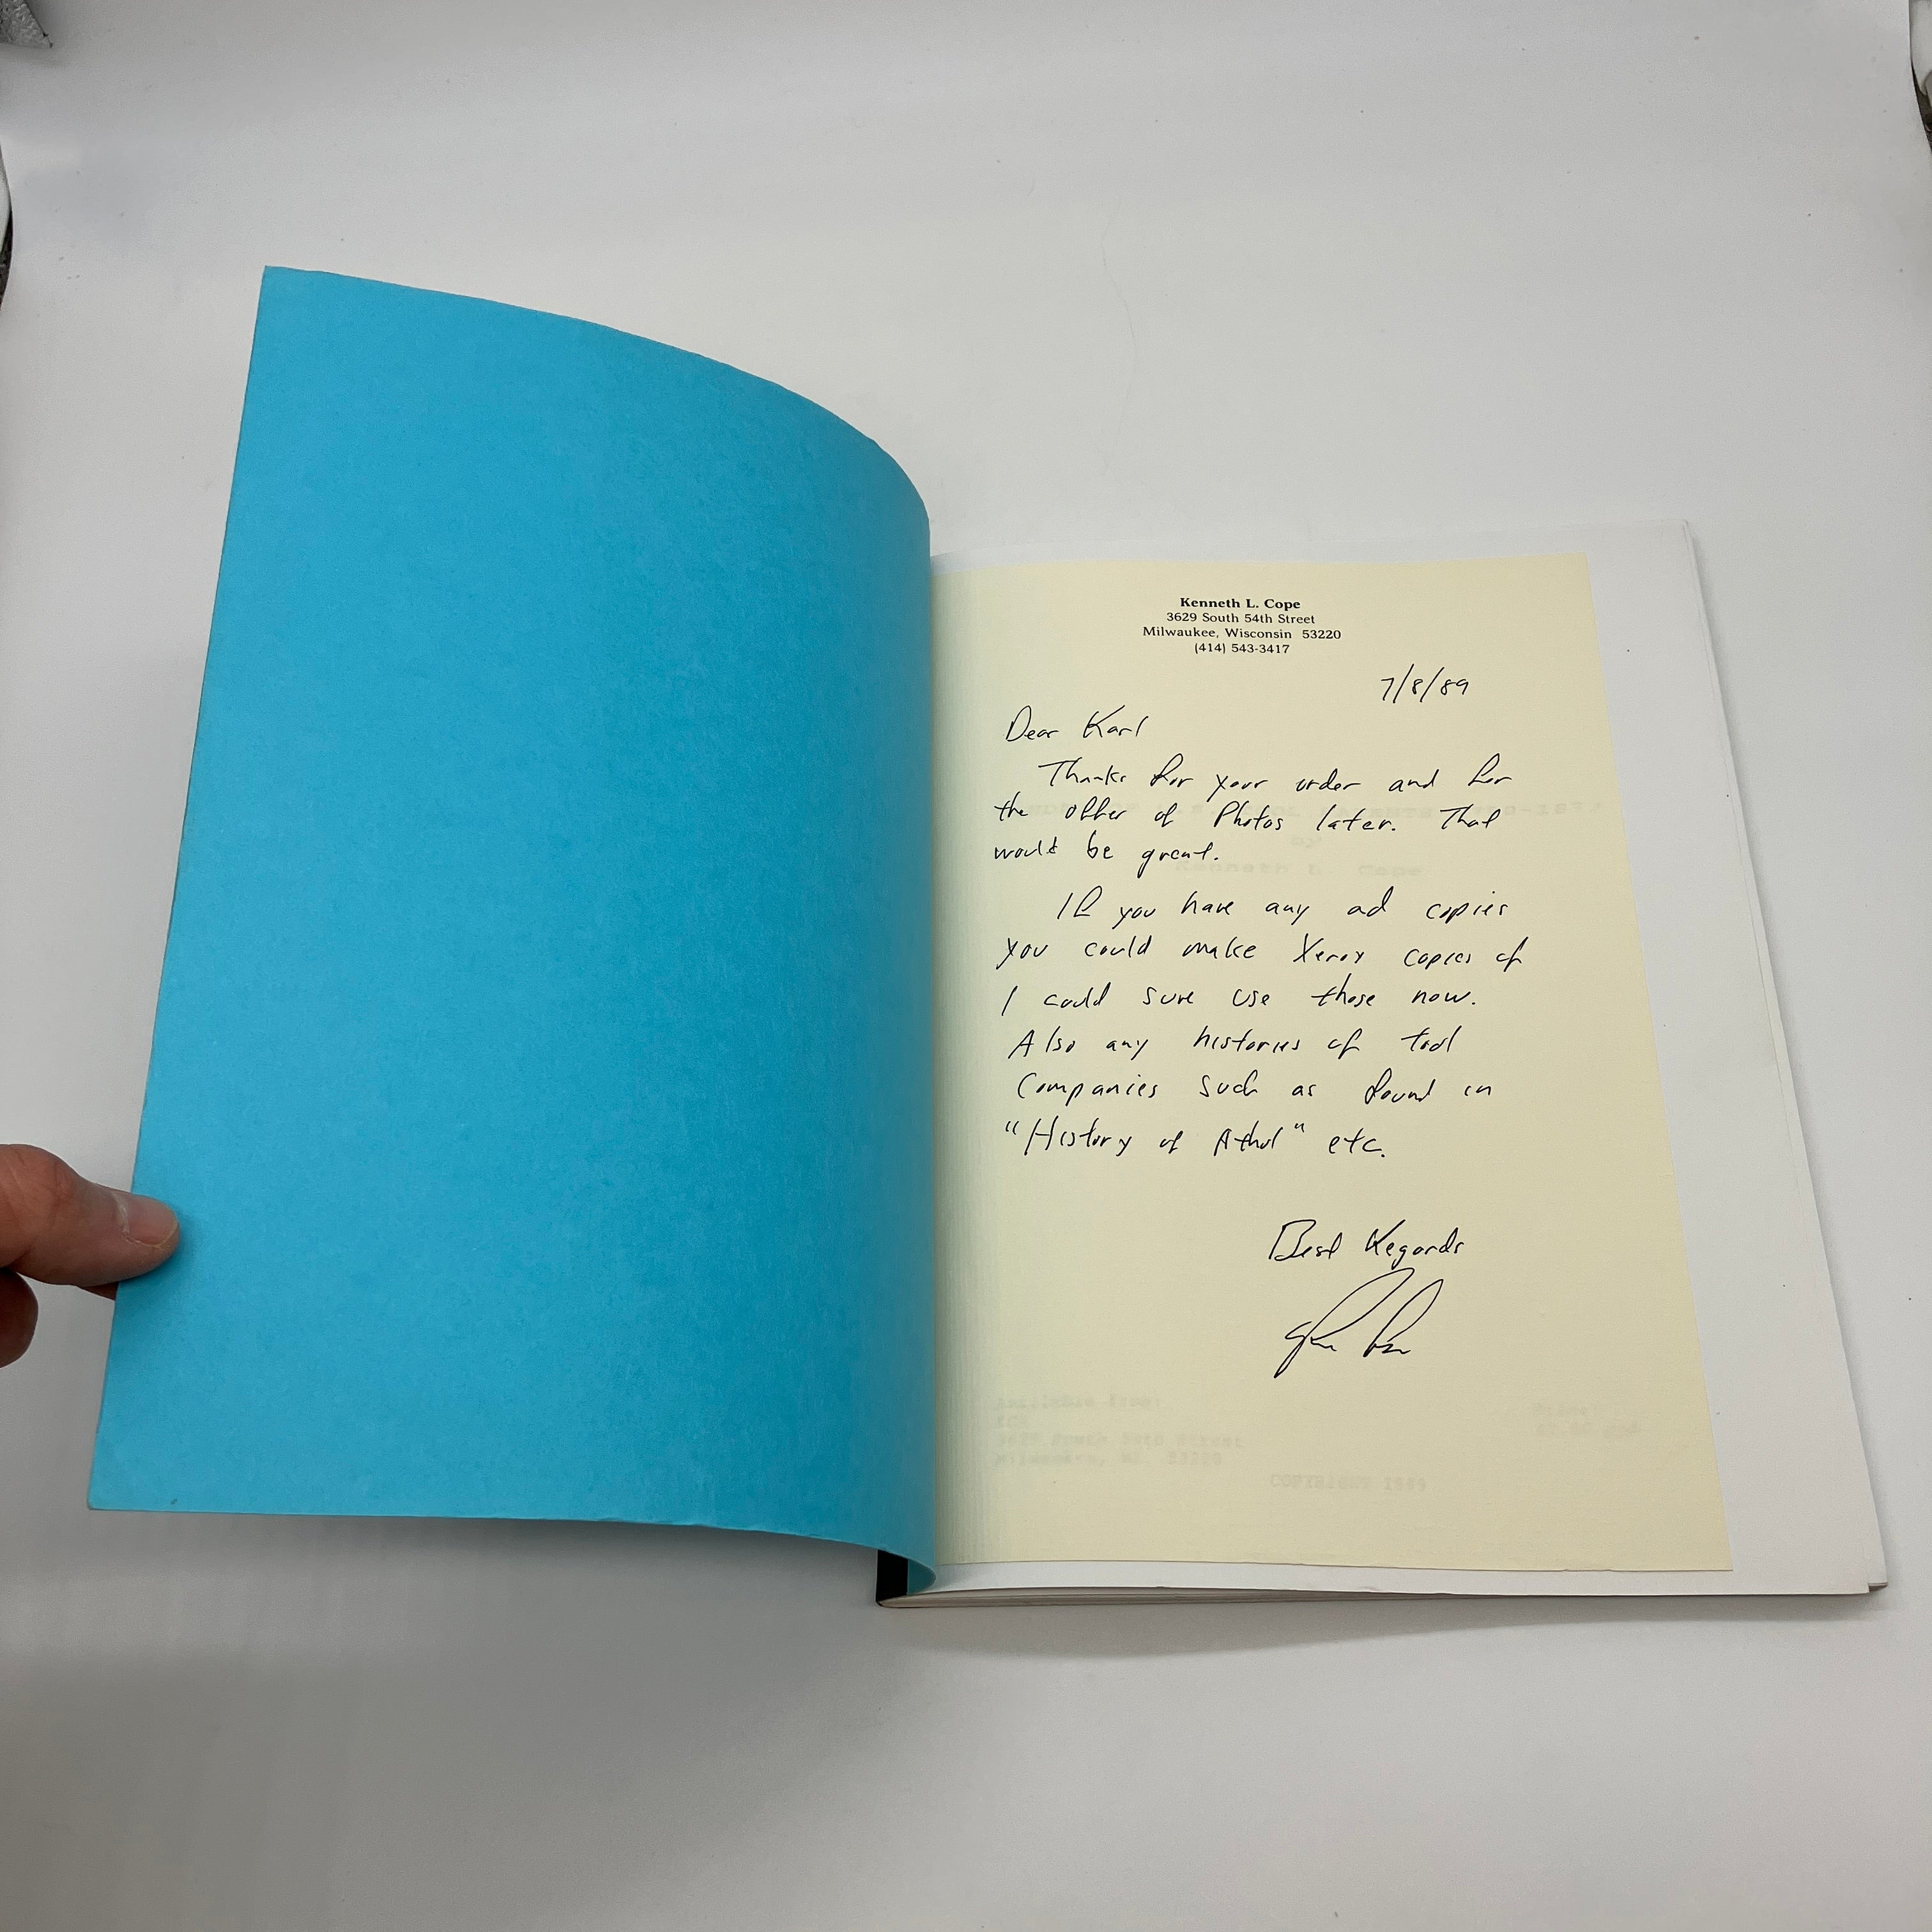 Kenneth L. Cope
3629 South 54th Street
Milwaukee, Wisconsin 53220
(414) 543-3417
7/8/89
Dear Karl
Thanks for your order and for
the offer of Photos later. That
would be great.
If you have any ad copies
you could make Xerox copies of
I could sure use those now.
Also any histories of tool
Companies such as found in
"History of Athol" etc.
Best Regards
Kenneth L. Cope
Available from:
3629 South 54th Street
Milwaukee, WI 53220
COPYRIGHT 1989